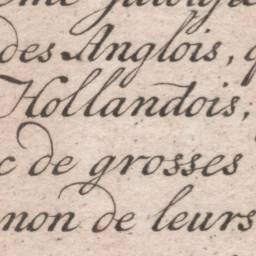 des Anglois,
Hollandois;
de grosses
non de leurs